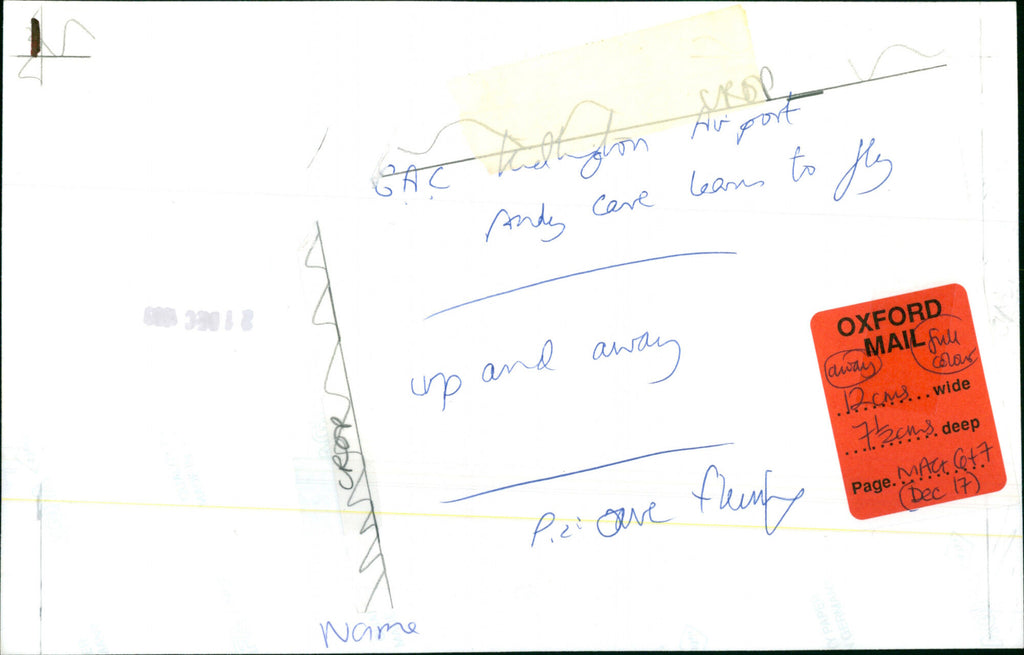 CROP
GAC Kidlington Airport
Andy Cave learns to fly
up and away
Pic: Dave Fleming
Name
CROP
21 DEC
OXFORD
MAIL
away
full
colour
12cms wide
7½cms deep
Page. MAG 6+7
(Dec 17)